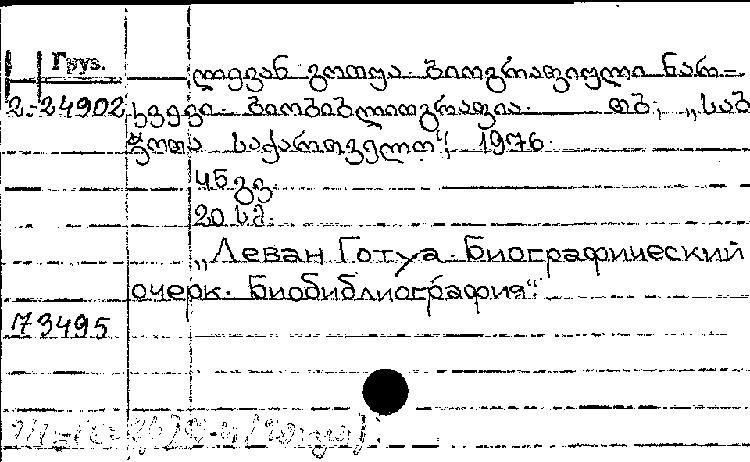 Груз.
ლევან გოთუა. ბიოგრაფიული ნარ-
2-24902 კვევი. ბიობიბლიოგრაფია. თბ., „საბ
ჭოთა საქართველო“, 1976.
45 გვ.
20 სმ.
„Леван Готуа. Биографический
очерк. Биобиблиография“.
73495